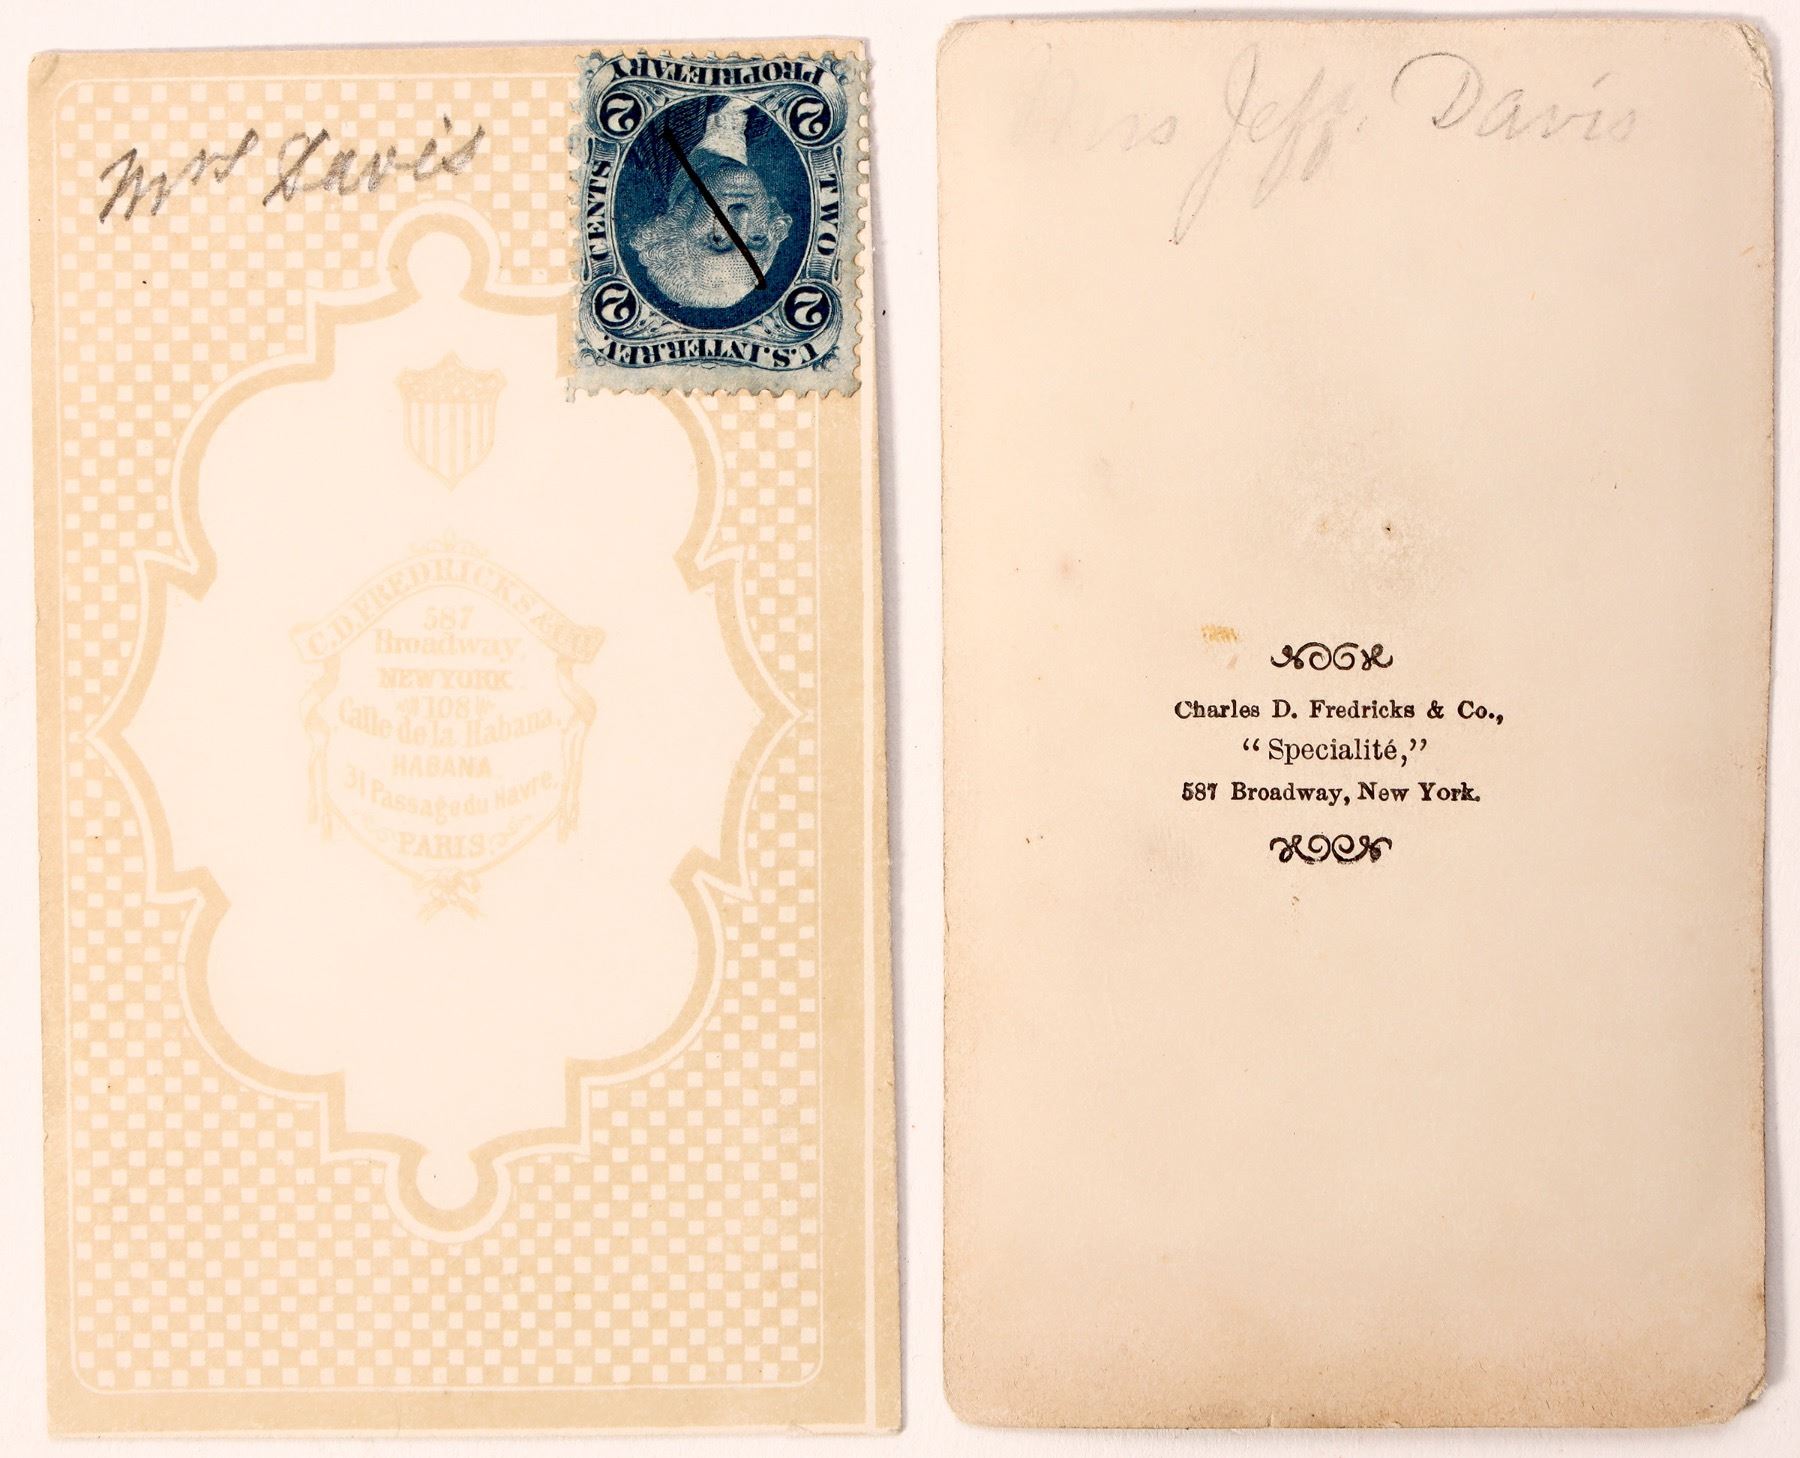 Mrs Davis
PROPRIETARY
2 2
CENTS TWO
2 2
U.S. INTER. REV.
C.D. FREDRICKS & CO
587
Broadway,
NEW YORK.
108
Calle de la Habana.
HABANA
31 Passage du Havre.
PARIS
Mrs Jeff. Davis
Charles D. Fredricks & Co.,
“Specialité,”
587 Broadway, New York.